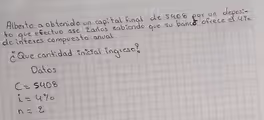 Alberto a obtenido un capital final de 5408 por un deposi-
to que efectuo ase 2 años sabiendo que su banco ofrece el 4%
de interes compuesto anual
¿Que cantidad inicial ingreso?
Datos
C = 5408
i = 4%
n = 2